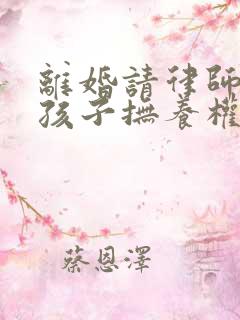 離婚請律師
孩子撫養權
蔡恩澤